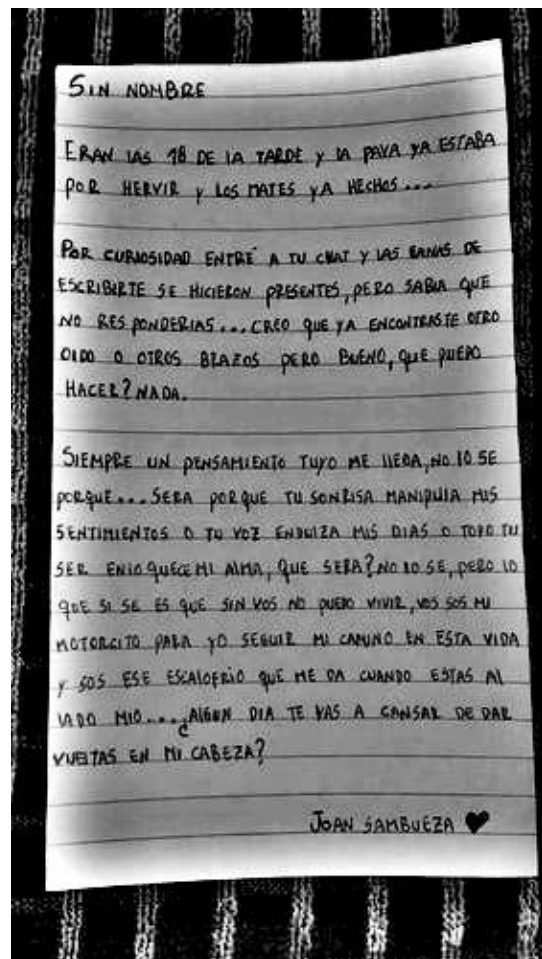 SIN NOMBRE
ERAN LAS 18 DE LA TARDE Y LA PAVA YA ESTABA
POR HERVIR Y LOS MATES YA HECHOS...
POR CURIOSIDAD ENTRÉ A TU CHAT Y LAS GANAS DE
ESCRIBIRTE SE HICIERON PRESENTES, PERO SABIA QUE
NO RESPONDERIAS... CREO QUE YA ENCONTRASTE OTRO
OIDO O OTROS BRAZOS PERO BUENO, QUE PUEDO
HACER? NADA.
SIEMPRE UN PENSAMIENTO TUYO ME LLEGA, NO LO SE
PORQUE... SERA PORQUE TU SONRISA MANIPULA MIS
SENTIMIENTOS O TU VOZ ENDULZA MIS DIAS O TODO TU
SER ENLOQUECE MI ALMA, QUE SERA? NO LO SE, PERO LO
QUE SI SE ES QUE SIN VOS NO PUEDO VIVIR, VOS SOS MI
MOTORCITO PARA YO SEGUIR MI CAMINO EN ESTA VIDA
Y SOS ESE ESCALOFRIO QUE ME DA CUANDO ESTAS AL
LADO MIO... ¿ALGUN DIA TE VAS A CANSAR DE DAR
VUELTAS EN MI CABEZA?
JOAN SAMBUEZA ♥